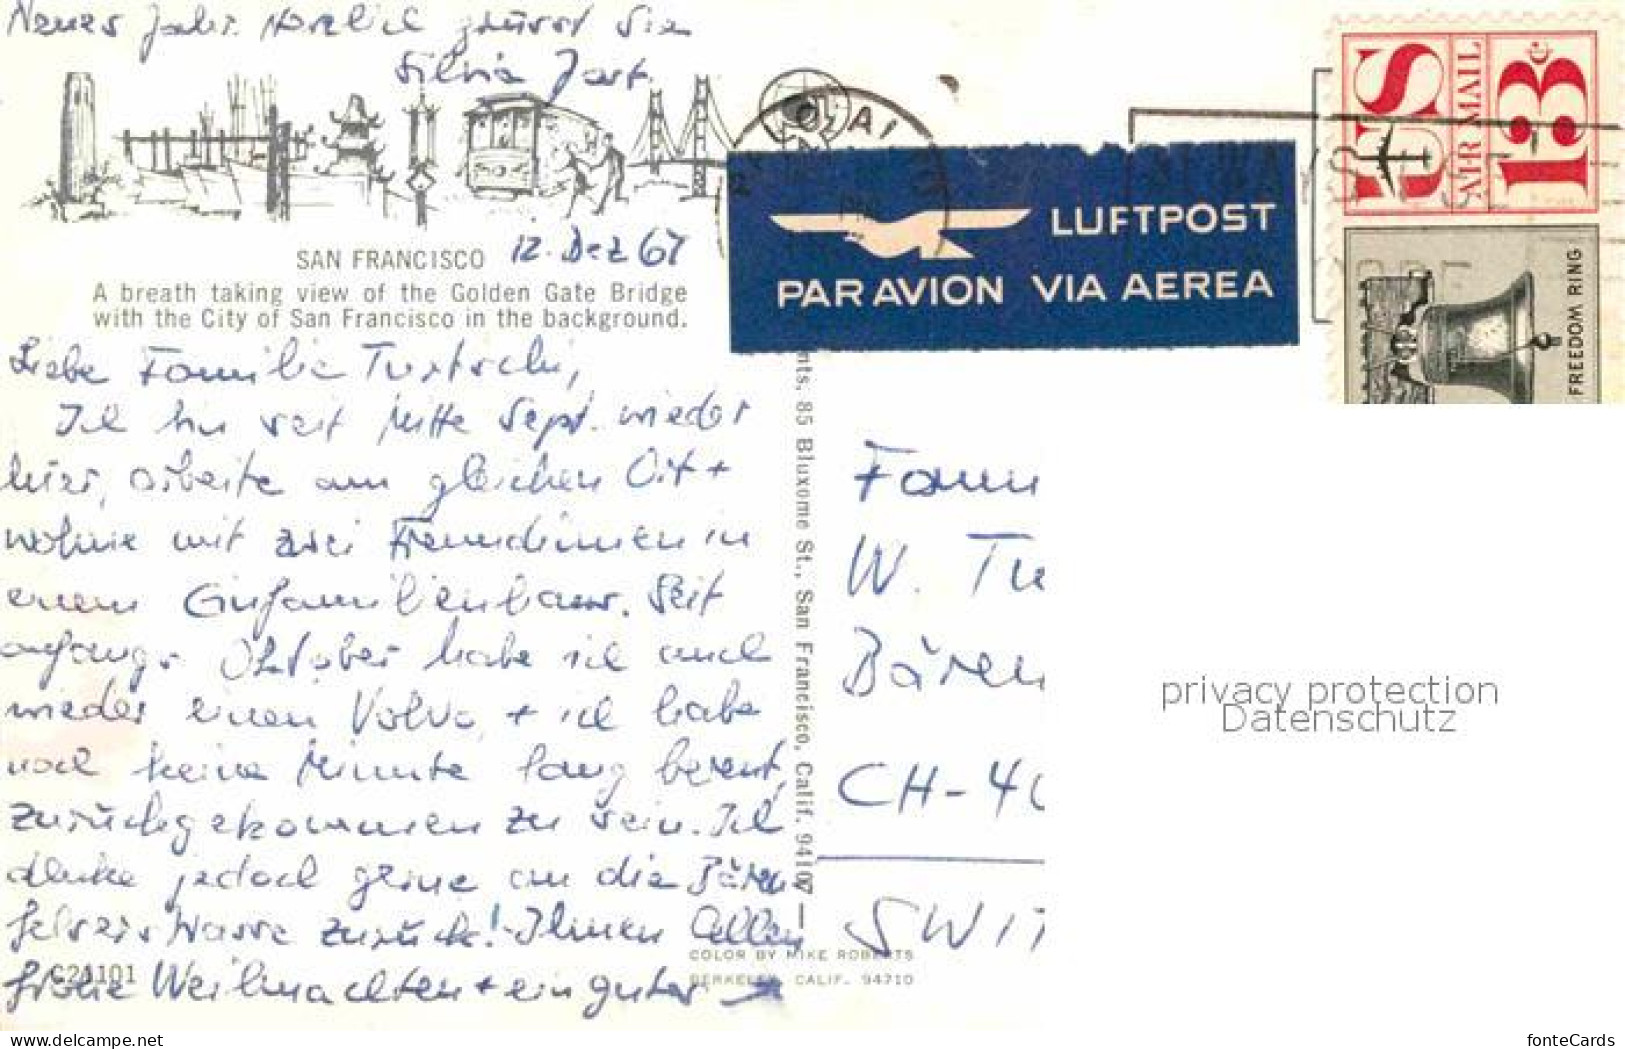 Neues Jahr. Herzlich grüsst Sie
Silvia Jost.
PALO AL
PM
LUFTPOST
PAR AVION VIA AEREA
US
AIR MAIL
13¢
FREEDOM RING
SAN FRANCISCO 12. Dez 67
A breath taking view of the Golden Gate Bridge
with the City of San Francisco in the background.
Liebe Familie
Ich bin seit Mitte Sept. wieder
hier, arbeite am gleichen Ort +
wohne mit zwei Freundinnen in
einem Einfamilienhaus. Seit
anfangs Oktober habe ich auch
wieder einen Volvo + ich habe
noch keine Minute lang bereut,
zurückgekommen zu sein. Ich
denke jedoch gerne an die Bären
felserstrasse zurück! Ihnen allen
frohe Weihnachten + ein gutes
C21101
nts. 85 Bluxome St., San Francisco, Calif. 94107
COLOR BY MIKE ROBERTS
BERKELEY, CALIF. 94710
Fam
W. Tu
Bären
CH-40
SWIT
privacy protection
Datenschutz
www.delcampe.net
fonteCards